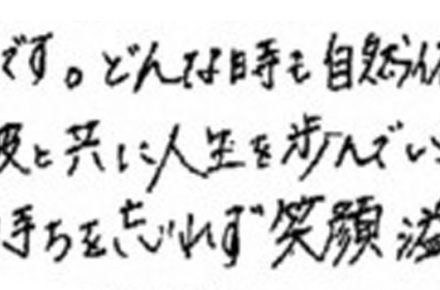 です。どんな時も自然体
彼と共に人生を歩んでい
持ちを忘れず笑顔溢